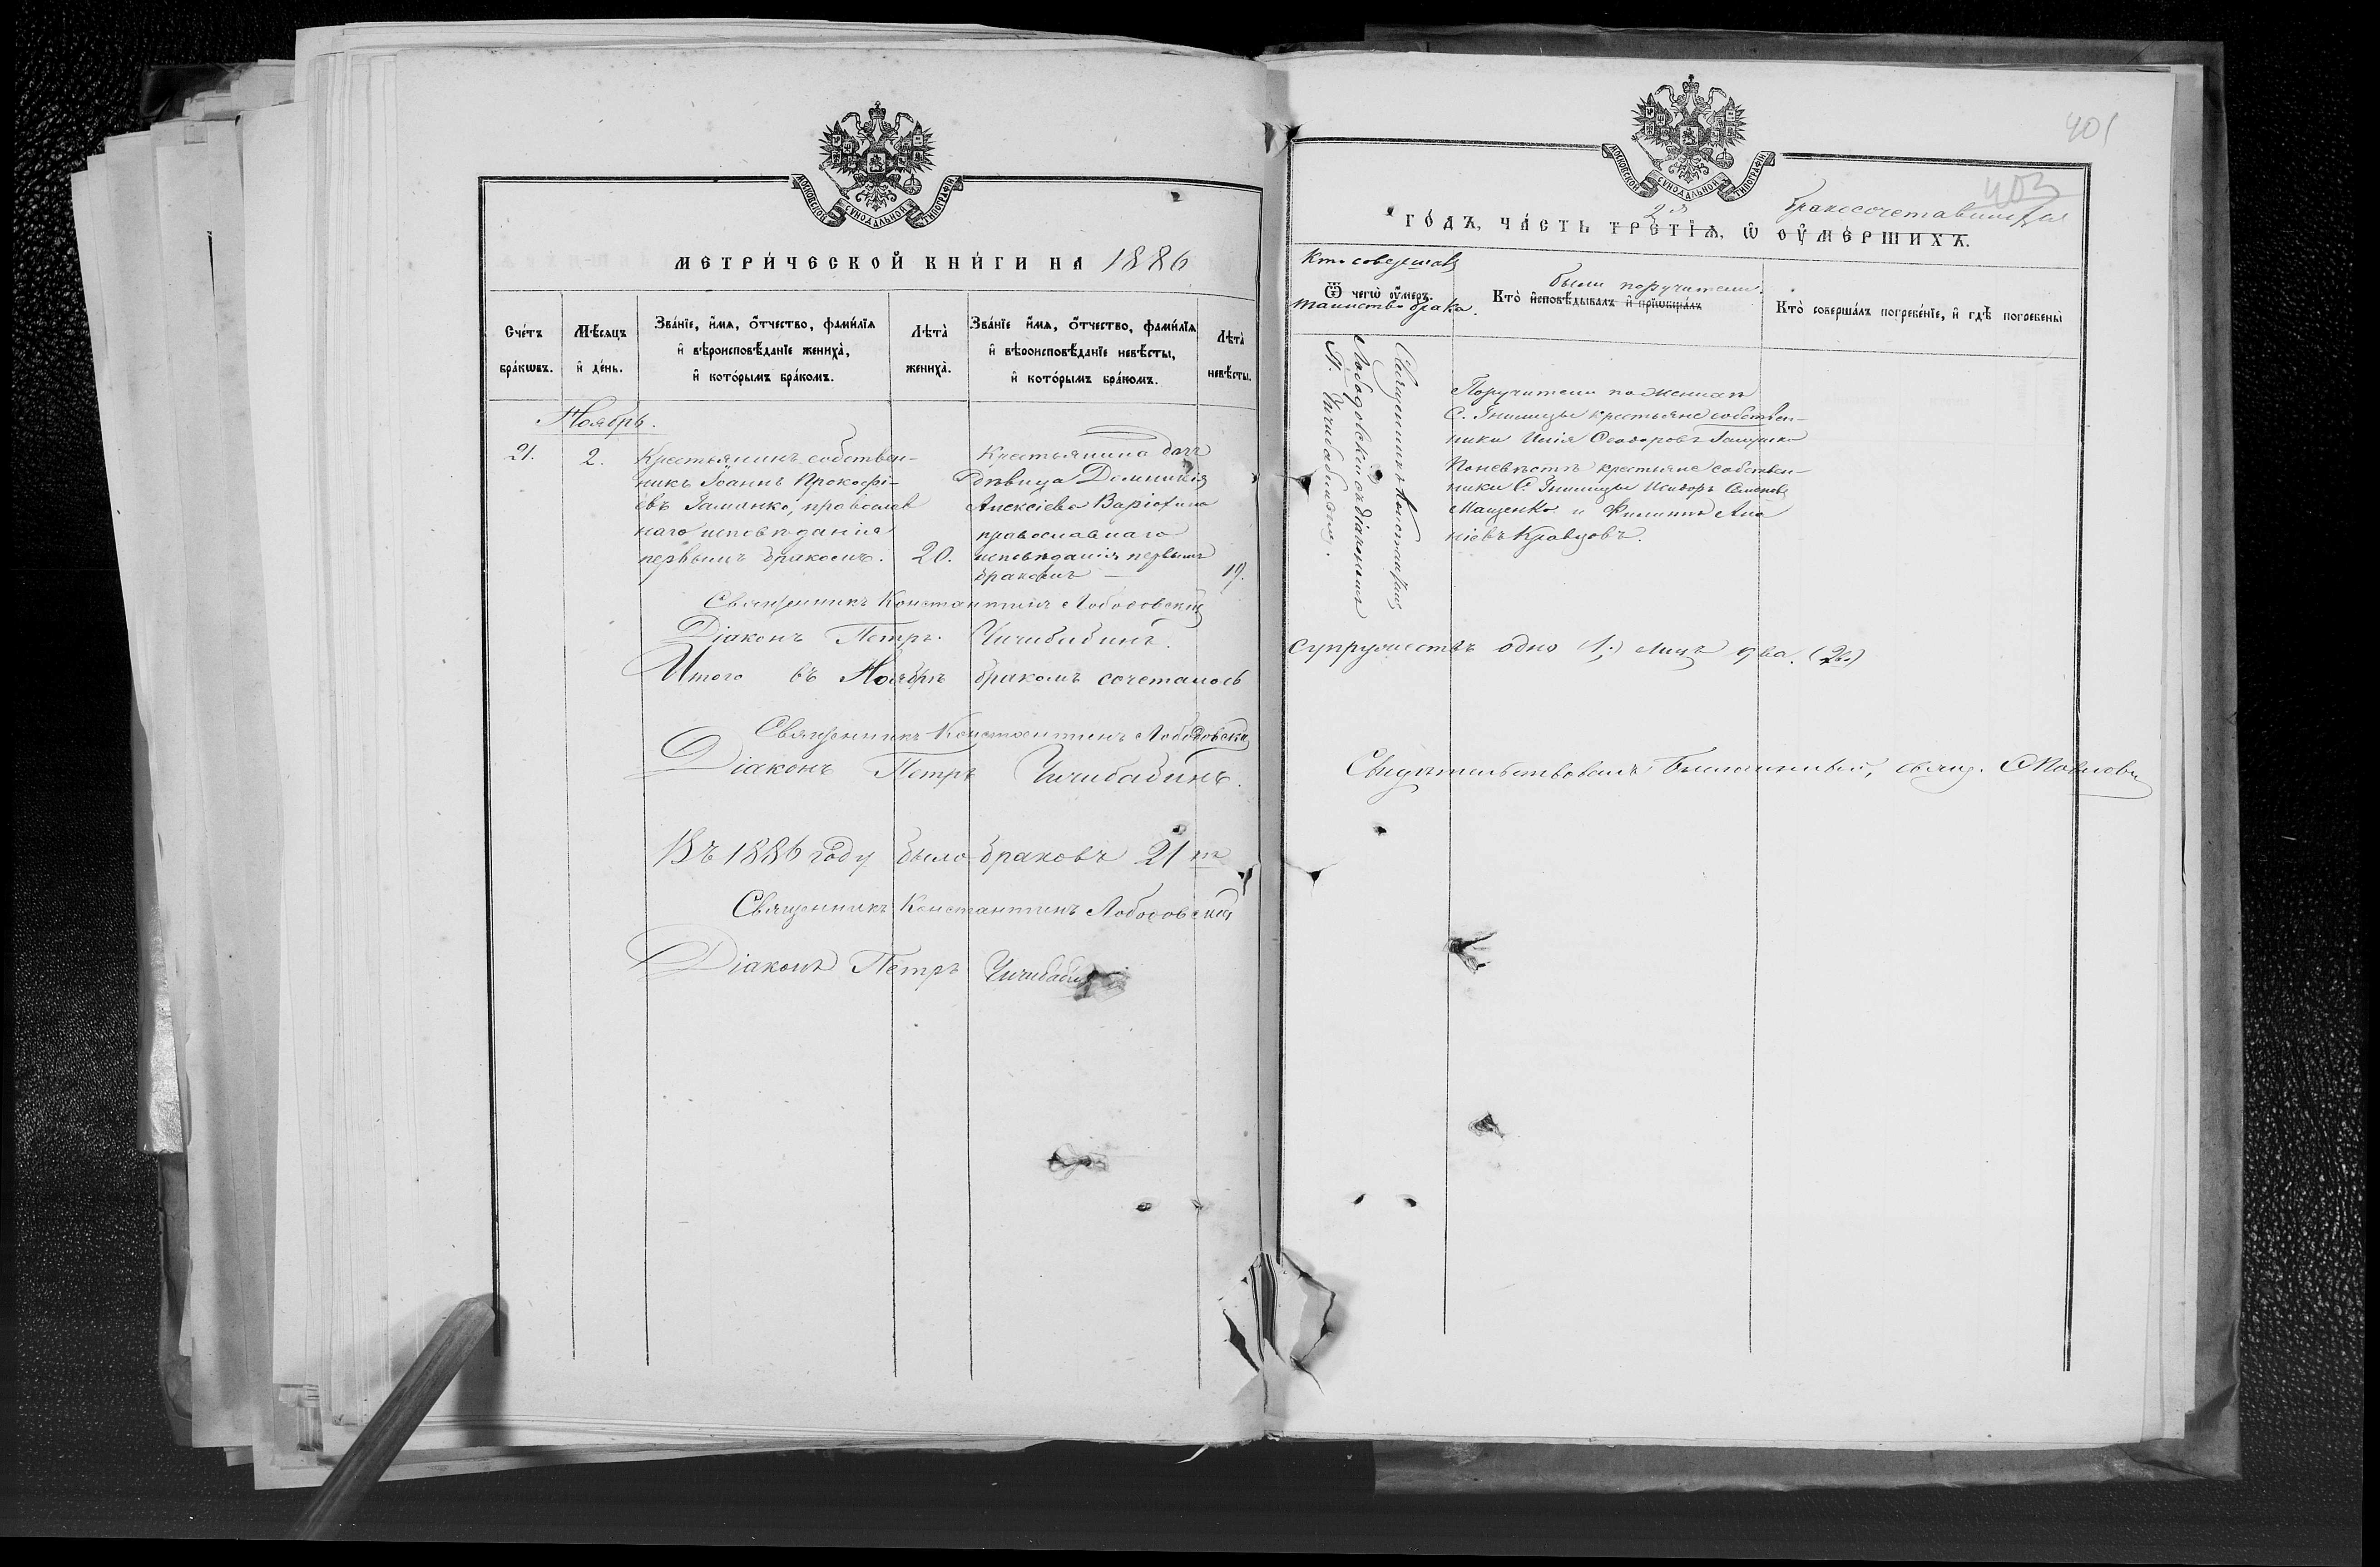 МОСКОВСКОЙ СѴНОДАЛЬНОЙ ТИПОГРАФІИ
МЕТРИ́ЧЕСКОЙ КНИ́ГИ НА 1886
Сче́тъ бра́кѡвъ.
Мѣ́сяцъ и҆ де́нь.
Зва́нїе, и҆́мя, ѻ҆́тчество, фами́лїя
и҆ вѣроисповѣ́данїе жениха̀,
и҆ кото́рымъ бра́комъ.
Лѣта̀ жениха̀.
Зва́нїе и҆́мя, ѻ҆́тчество, фами́лїя
и҆ вѣроисповѣ́данїе невѣ́сты,
и҆ кото́рымъ бра́комъ.
Лѣта̀ невѣ́сты.
Ноябрь.
21.
2.
Крестьянинъ собствен-
никъ Іоаннъ Прокофі-
евъ, православ
наго исповѣданія
первымъ бракомъ.
20.
Крестьянина дочь
дѣвица Домникія
Алексіева
православнаго
исповѣданія первымъ
бракомъ
19.
Священникъ Константинъ Лободовскій
Діаконъ Петръ Чичибабинъ.
Итого въ Ноябрѣ бракомъ сочеталось
Священникъ Константинъ Лободовскій
Діаконъ Петръ Чичибабинъ.
Въ 1886 году было браковъ 21
Священникъ Константинъ Лободовскій
Діаконъ Петръ Чичибабинъ
401
403
МОСКОВСКОЙ СѴНОДАЛЬНОЙ ТИПОГРАФІИ
2я бракосочетавшихся
ГО́ДЪ, ЧА́СТЬ ТРЕ́ТЇЯ, Ѡ҆ ОУ҆МЕ́РШИХЪ.
Кто совершалъ
Ѿ чегѡ̀ оу҆́меръ.
таинство брака.
были поручители.
Кто̀ и҆сповѣ́дывалъ и҆ прїѡбща́лъ
Кто̀ соверша́лъ погребе́нїе, и҆ гдѣ̀ погребены̀
Священникъ Константинъ
Лободовскій съ діакономъ
П. Чичибабинымъ.
Поручители по женихѣ
С. Гнилицы крестьяне собствен-
ники Илія Ѳеодоровъ
По невѣстѣ крестьяне собствен-
ники С. Гнилицы Исидоръ Семеновъ
Мащенко и Филиппъ Ана
ніевъ Кравцовъ.
супружествъ одно (1.) лицъ два. (2.)
Свидѣтельствовалъ Благочинный, свящ.